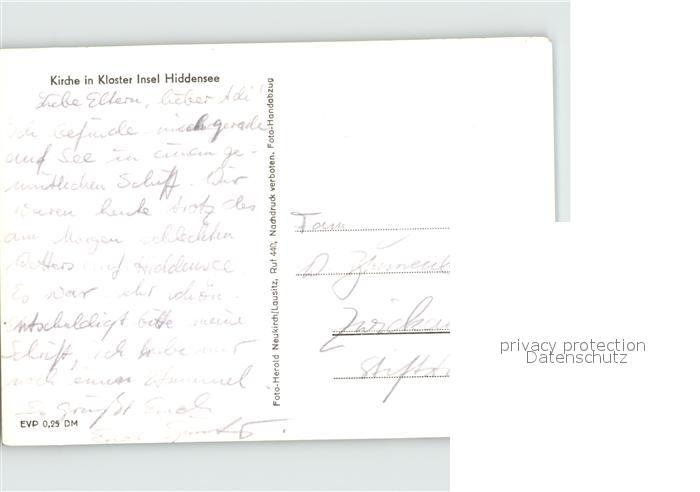 Kirche in Kloster Insel Hiddensee
Liebe Eltern, lieber Adi!
Ich befinde mich gerade
auf See in einem ge-
mütlichen Schiff. Wir
waren heute trotz des
am Morgen schlechten
Wetters auf Hiddensee
Es war sehr schön.
Entschuldigt bitte meine
Schrift, ich habe nur
noch einen Stummel
Es grüßt Euch
Euer
EVP 0,25 DM
Foto-Herold Neukirch/Lausitz, Ruf 440, Nachdruck verboten. Foto-Handabzug
Fam
Zwickau
privacy protection
Datenschutz